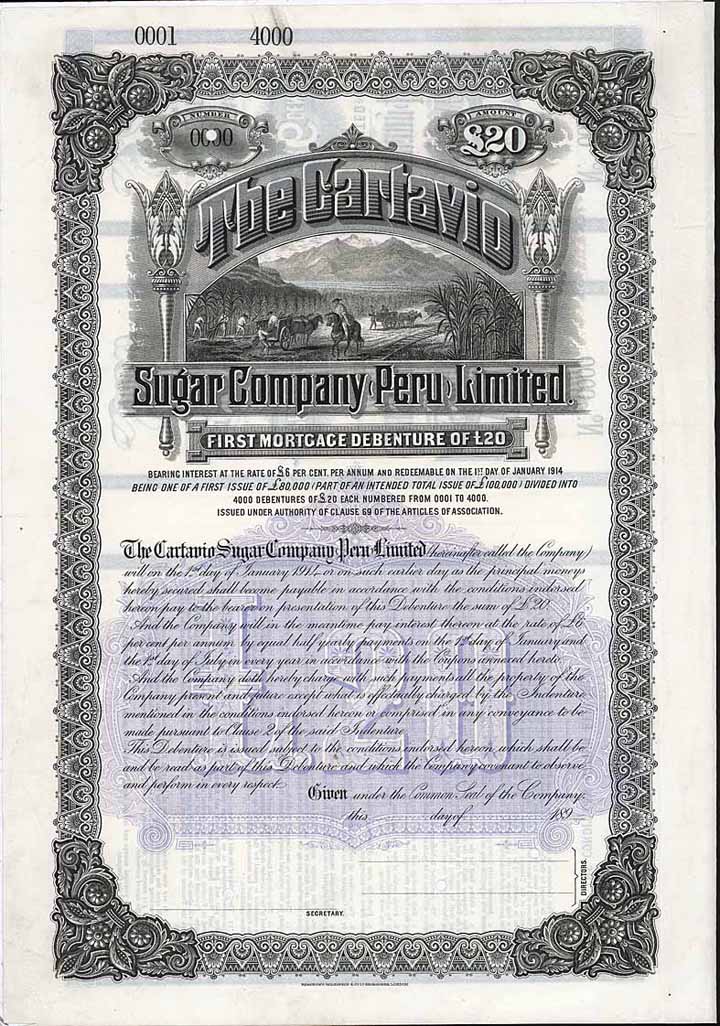 0001 4000
NUMBER
0000
AMOUNT
£20
The Cartavio
Sugar Company (Peru) Limited.
FIRST MORTGAGE DEBENTURE OF £20
BEARING INTEREST AT THE RATE OF £6 PER CENT. PER ANNUM AND REDEEMABLE ON THE 1ST DAY OF JANUARY 1914
BEING ONE OF A FIRST ISSUE OF £80,000 (PART OF AN INTENDED TOTAL ISSUE OF £100,000) DIVIDED INTO
4000 DEBENTURES OF £20 EACH. NUMBERED FROM 0001 TO 4000.
ISSUED UNDER AUTHORITY OF CLAUSE 69 OF THE ARTICLES OF ASSOCIATION.
The Cartavio Sugar Company Peru Limited (hereinafter called the Company)
will on the 1st day of January 1914 or on such earlier day as the principal moneys
hereby secured shall become payable in accordance with the conditions indorsed
hereon pay to the bearer on presentation of this Debenture the sum of £20.
And the Company will in the meantime pay interest thereon at the rate of £6
per cent per annum by equal half yearly payments on the 1st day of January and
the 1st day of July in every year in accordance with the Coupons annexed hereto.
And the Company doth hereby charge with such payments all the property of the
Company present and future except what is effectually charged by the Indenture
mentioned in the conditions indorsed hereon or comprised in any conveyance to be
made pursuant to Clause 2 of the said Indenture.
This Debenture is issued subject to the conditions indorsed hereon which shall be
and be read as part of this Debenture and which the Company covenant to observe
and perform in every respect.
Given under the Common Seal of the Company
this day of 189
DIRECTORS.
SECRETARY.